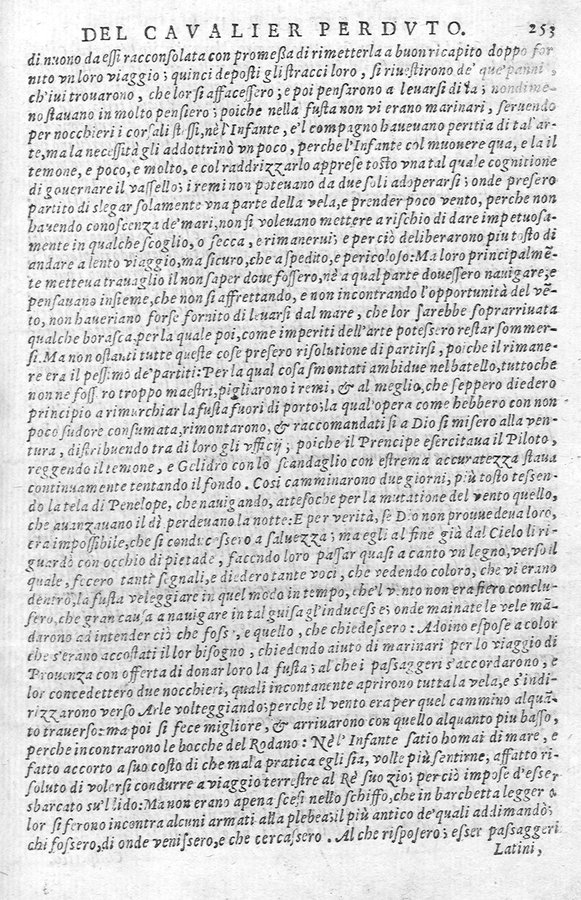 DEL CAVALIER PERDVTO. 253
di nuouo da essi racconsolata con promeßa di rimetterla a buon ricapito doppo for
nito vn loro viaggio; quinci deposti gli stracci loro, si riuestirono de' que' panni,
ch'iui trouarono, che lor si affacessero; e poi pensarono a leuarsi di là; nondime
no stauano in molto pensiero; poiche nella fusta non vi erano marinari, seruendo
per nocchieri i corsali stessi, nè l'Infante, e'l compagno haueuano peritia di tal'ar-
te, ma la necessità gli addottrinò vn poco, perche l'Infante col muouere qua, e la il
temone, e poco, e molto, e col raddrizzarlo apprese tosto vna tal quale cognitione
di gouernare il vassello; i remi non poteuano da due soli adoperarsi; onde presero
partito di slegar solamente vna parte della vela, e prender poco vento, perche non
hauendo conoscenza de' mari, non si voleuano mettere a rischio di dare impetuosa-
mente in qualche scoglio, o secca, e rimanerui; e perciò deliberarono piu tosto di
andare a lento viaggio, ma sicuro, che a spedito, e pericoloso: Ma loro principalmē-
te metteua trauaglio il non saper doue fossero, nè a qual parte douessero nauigare; e
pensauano insieme, che non si affrettando, e non incontrando l'opportunità del vē-
to, non haueriano forse fornito di leuarsi dal mare, che lor sarebbe soprarriuata
qualche borasca, per la quale poi, come imperiti dell'arte potessero restar sommer-
si. Ma non ostanti tutte queste cose presero risolutione di partirsi, poiche il rimane-
re era il pessimo de' partiti: Per la qual cosa smontati ambidue nel batello, tuttoche
non ne fossero troppo maestri, pigliarono i remi, & al meglio, che seppero diedero
principio a rimurchiar la fusta fuori di porto; la qual'opera come hebbero con non
poco sudore consumata, rimontarono, & raccomandatisi a Dio si misero alla ven-
tura, distribuendo tra di loro gli vfficij; poiche il Prencipe esercitaua il Piloto,
reggendo il temone, e Gelidro con lo scandaglio con estrema accuratezza staua
continuamente tentando il fondo. Così camminarono due giorni, più tosto tessen-
do la tela di Penelope, che nauigando, attesoche per la mutatione del vento quello,
che auanzauano il dì perdeuano la notte: E per verità, se Dio non prouuedeua loro,
era impossibile, che si conducessero a saluezza; ma egli al fine già dal Cielo li ri-
guardò con occhio di pietade, facendo loro passar quasi a canto vn legno, verso il
quale, fecero tanti segnali, e diedero tante voci, che vedendo coloro, che vi erano
dentro, la fusta veleggiare in quel modo in tempo, che'l vento non era fiero conclu-
sero, che gran causa a nauigare in tal guisa gl'inducesse; onde mainate le vele mā-
darono ad intender ciò che fosse, e quello, che chiedessero: Adoino espose a color
che s'erano accostati il lor bisogno, chiedendo aiuto di marinari per lo viaggio di
Prouenza con offerta di donar loro la fusta; al che i passaggeri s'accordarono, e
lor concedettero due nocchieri, quali incontanente aprirono tutta la vela, e s'indi-
rizzarono verso Arle volteggiando; perche il vento era per quel cammino alquā-
to trauerso: ma poi si fece migliore, & arriuarono con quello alquanto piu basso,
perche incontrarono le bocche del Rodano: Nè l'Infante satio homai di mare, e
fatto accorto a suo costo di che mala pratica egli sia, volle più sentirne; affatto ri-
soluto di volersi condurre a viaggio terrestre al Rè suo zio; perciò impose d'esser
sbarcato su'l lido: Ma non erano apena scesi nello schiffo, che in barchetta legger a
lor si ferono incontra alcuni armati alla plebea; il più antico de' quali addimandò;
chi fossero, di onde venissero, e che cercassero. Al che risposero; esser passaggeri
Latini,